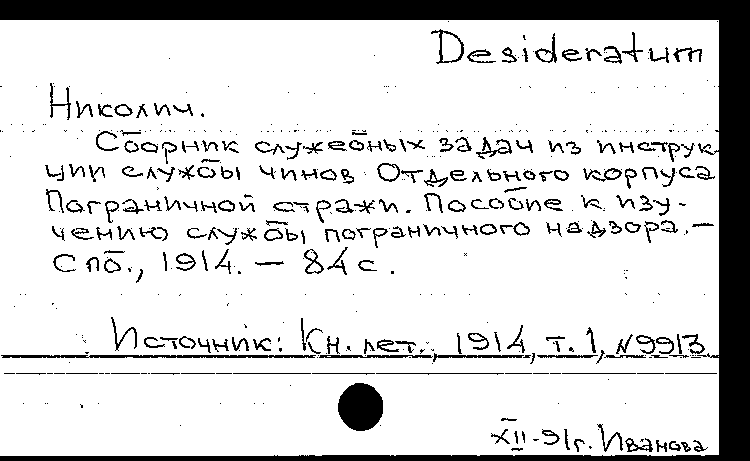 Desideratum
Николич.
Сборник служебных задач из инструк-
ции службы чинов Отдельного корпуса
Пограничной стражи. Пособие к изу-
чению службы пограничного надзора. –
Спб., 1914. – 84 с.
Источник: Кн. лет., 1914, т. 1, №9913
XII-91г. Иванова